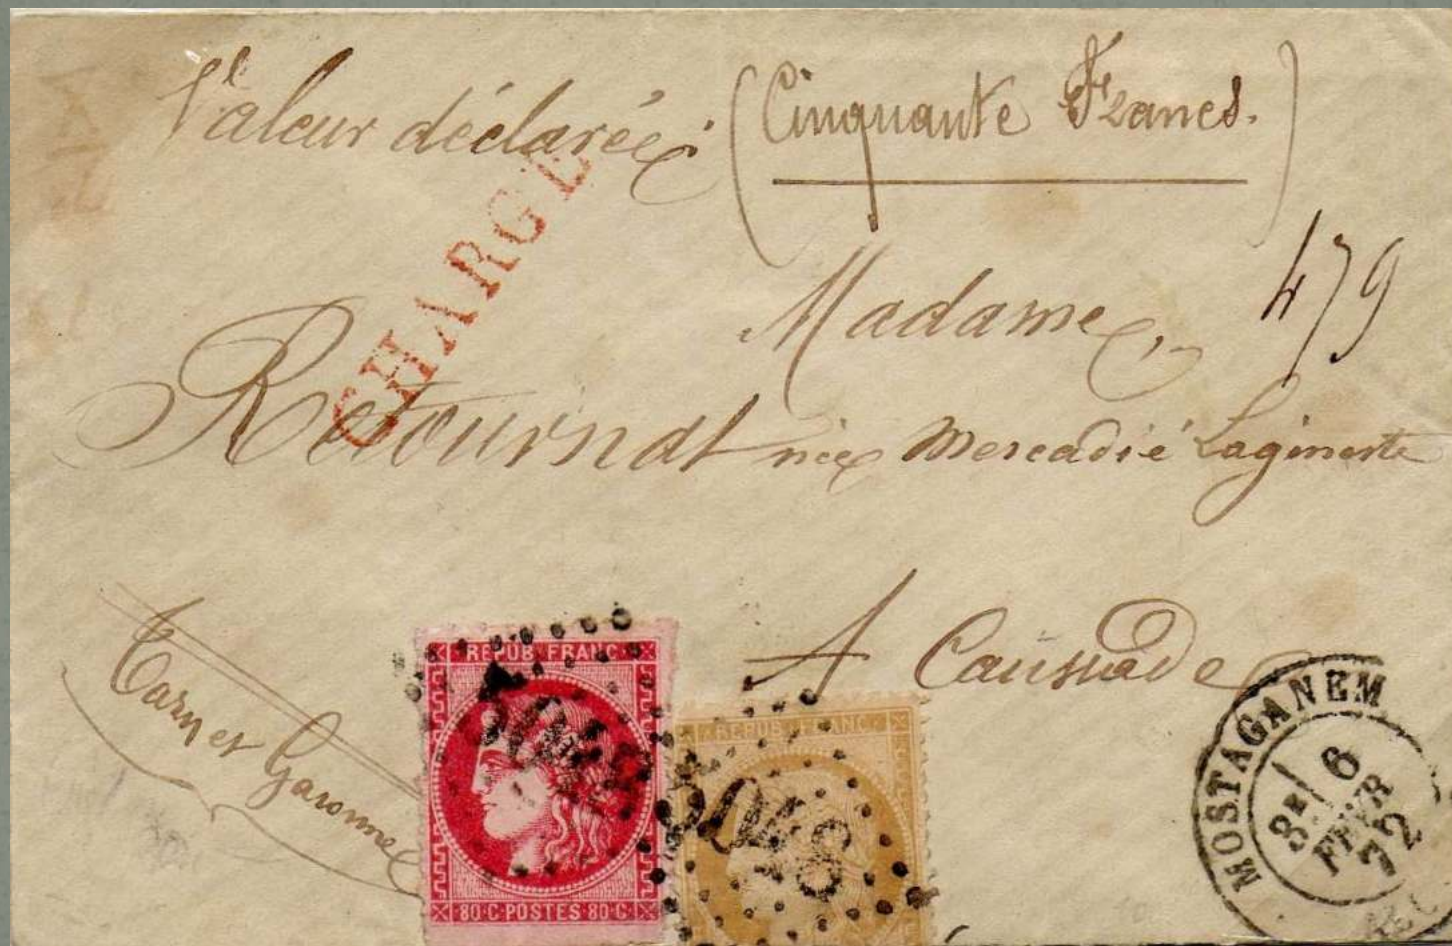 Valeur déclarée (Cinquante Francs.)
CHARGE
479
Madame
Retournat née Mercadié Lagineste
A Caussade
Tarn et Garonne
REPUB. FRANC.
80·C·POSTES·80·C
5048
REPUB. FRANC.
5048
MOSTAGANEM
3E
6
FEVR
72